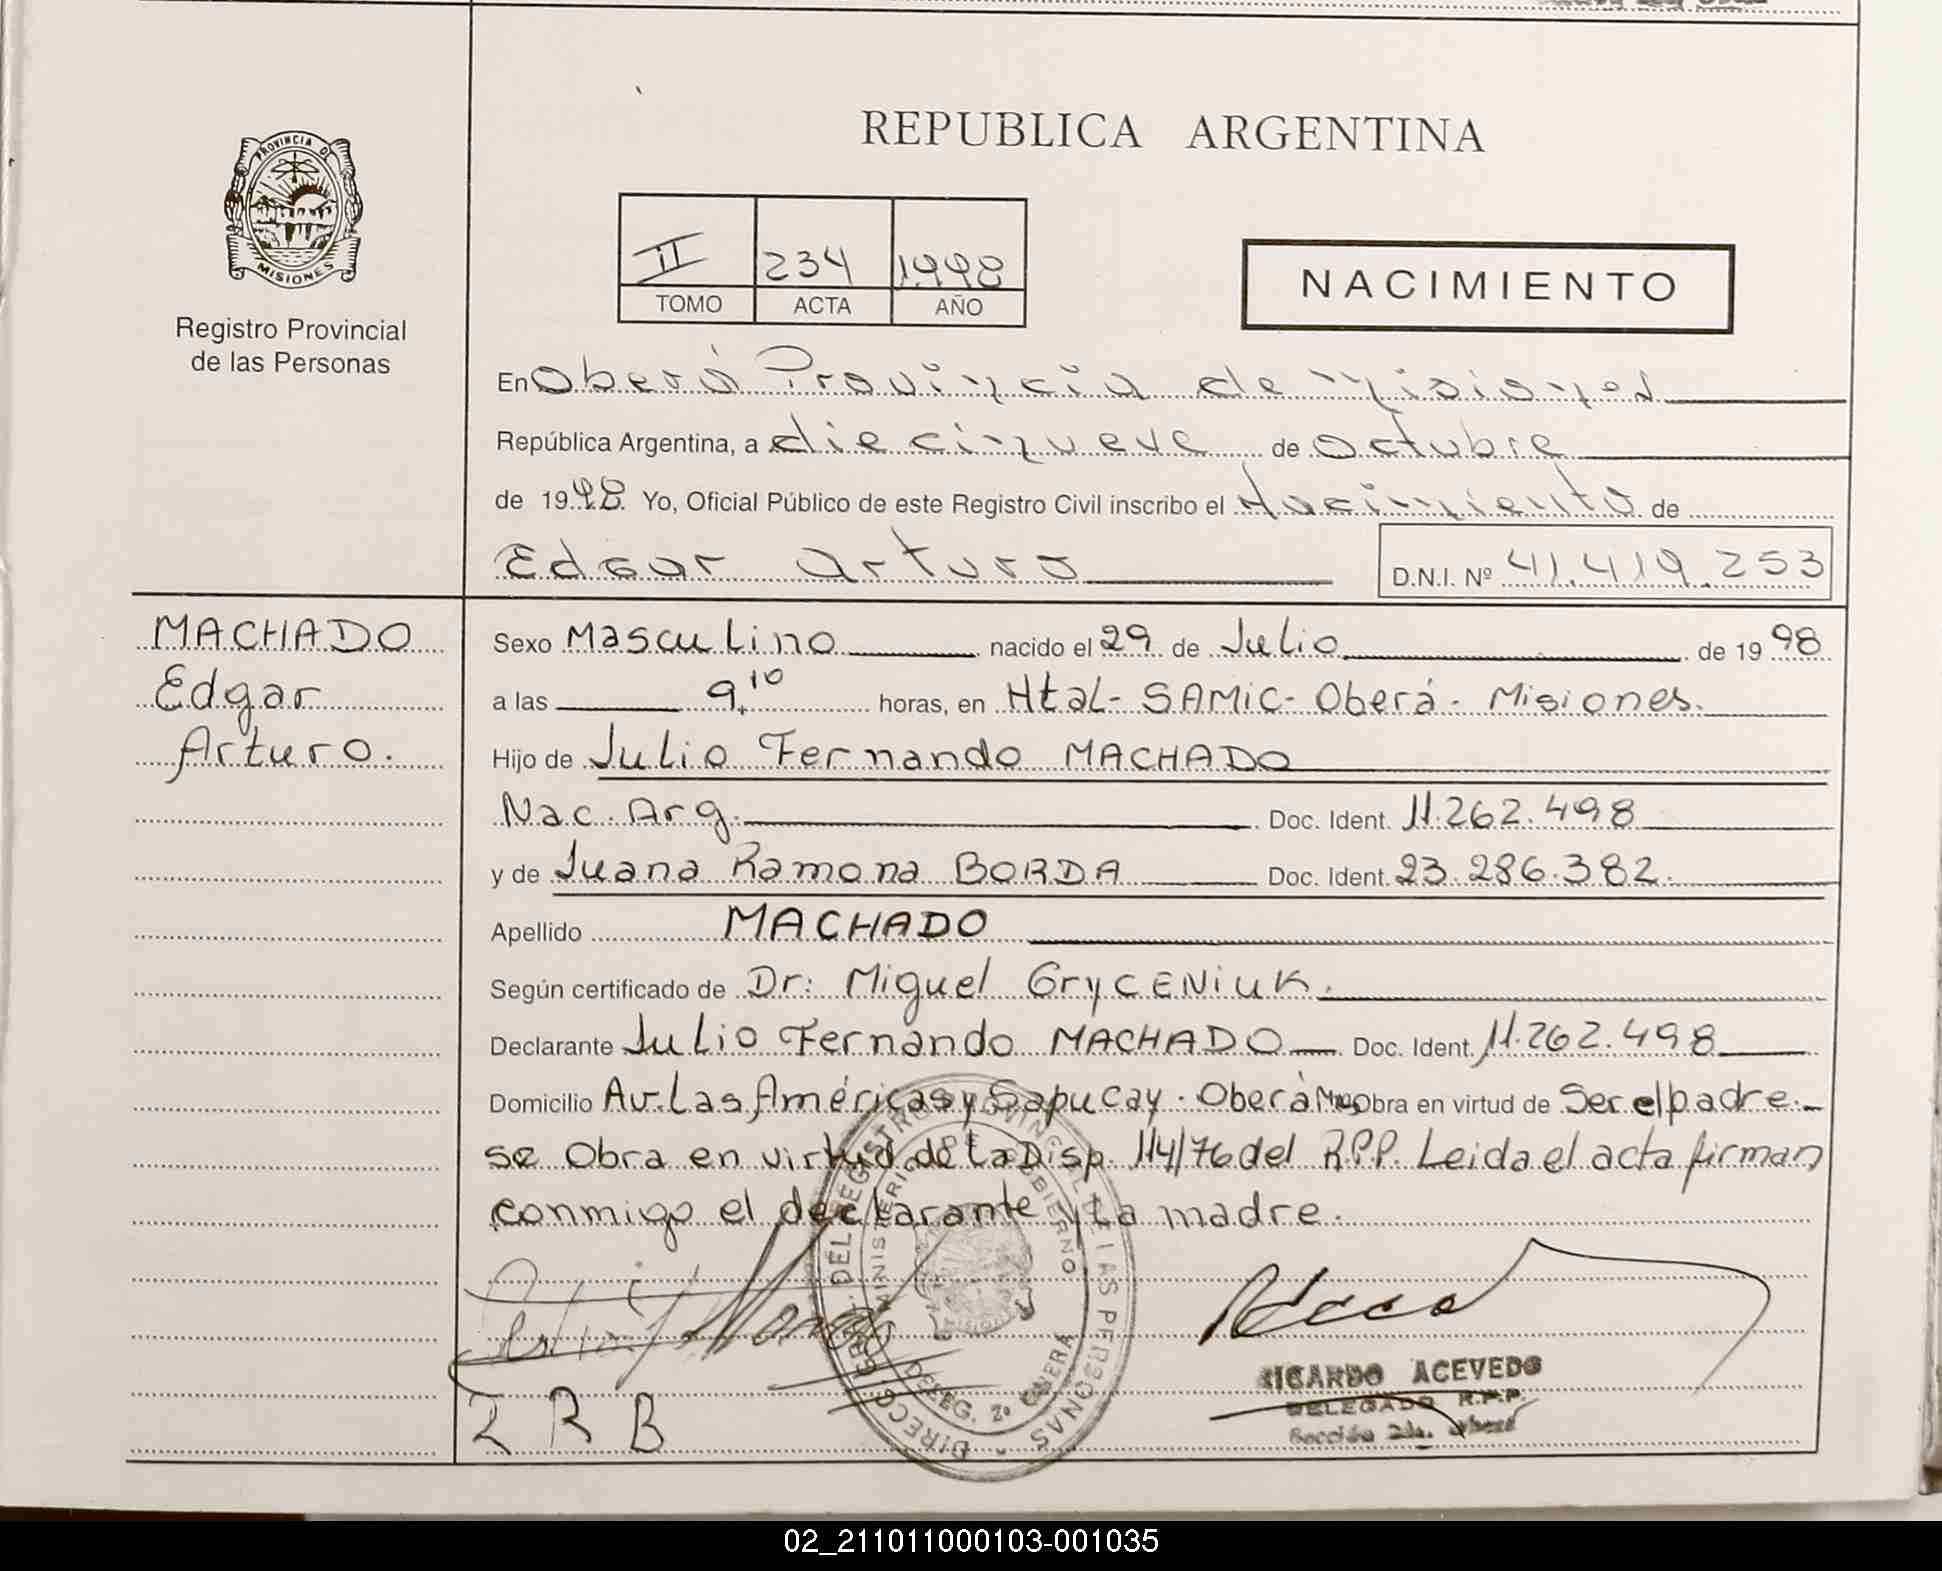 PROVINCIA DE
MISIONES
Registro Provincial
de las Personas
REPUBLICA ARGENTINA
II 234 1998
TOMO ACTA AÑO
NACIMIENTO
En Oberá Provincia de Misiones
República Argentina, a diecinueve de Octubre
de 1998 Yo, Oficial Público de este Registro Civil inscribo el Nacimiento de
Edgar Arturo D.N.I. Nº 41.419.253
MACHADO
Edgar
Arturo.
Sexo Masculino nacido el 29 de Julio de 1998
a las 9,10 horas, en Htal- SAMIC- Oberá- Misiones.
Hijo de Julio Fernando MACHADO
Nac. Arg. Doc. Ident. 11.262.498
y de Juana Ramona BORDA Doc. Ident. 23.286.382.
Apellido MACHADO
Según certificado de Dr: Miguel GryCENiuK.
Declarante Julio Fernando MACHADO Doc. Ident. 11.262.498
Domicilio Av. Las Américas y Sapucay. Oberá Mnes Obra en virtud de Ser el padre.-
se Obra en virtud de la Disp. 114/76 del R.P.P. Leida el acta firman
conmigo el declarante y la madre.
RICARDO ACEVEDO
DELEGADO R.P.P.
Sección 2da. Oberá
DELEG. 2º OBERA
J R B
02_211011000103-001035